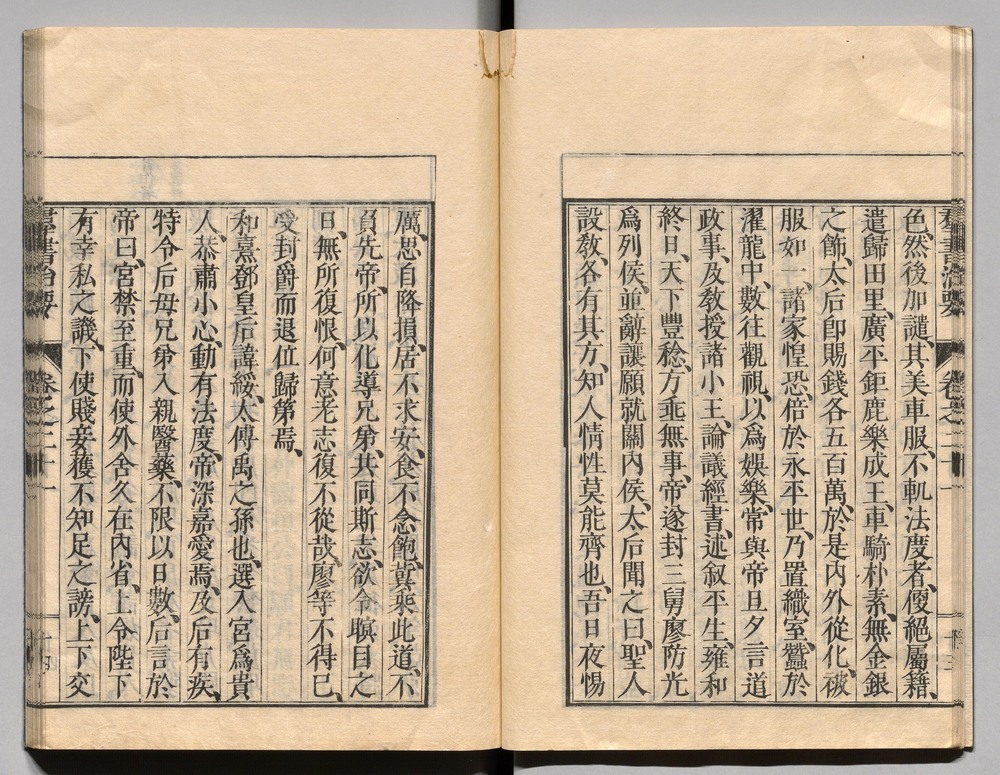 羣書治要 卷之二十一
色、然後加譴、其美車服、不軌法度者、傻絕屬籍、
遣歸田里、廣平鉅鹿樂成王、車騎朴素、無金銀
之飾、太后卽賜錢各五百萬、於是內外從化、被
服如一、諸家惶恐、倍於永平世、乃置織室、蠶於
濯龍中、數往觀視、以爲娛樂、常與帝旦夕言道
政事、及敎授諸小王、論議經書、述叙平生、雍和
終日、天下豐稔、方垂無事、帝遂封三舅廖防光
爲列侯、並辭讓願就關內侯、太后聞之曰、聖人
設敎、各有其方、知人情性莫能齊也、吾日夜惕
厲、思自降損、居不求安、食不念飽、冀乘此道、不
負先帝、所以化導兄弟、共同斯志、欲令瞑目之
日、無所復恨、何意老志復不從哉、廖等不得已、
受封爵而退位歸第焉、
和熹鄧皇后諱綏、太傅禹之孫也、選入宮爲貴
人、恭肅小心、動有法度、帝深嘉愛焉、及后有疾、
特令后母兄弟入親醫藥、不限以日數、后言於
帝曰、宮禁至重、而使外舍久在內省、上令陛下
有幸私之譏、下使賤妾獲不知足之謗、上下交
羣書治要 卷之二十一